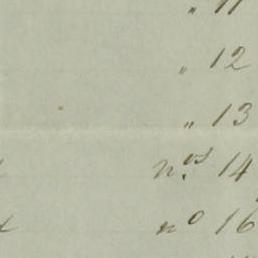 " 11
" 12
" 13
n.os 14
no 16